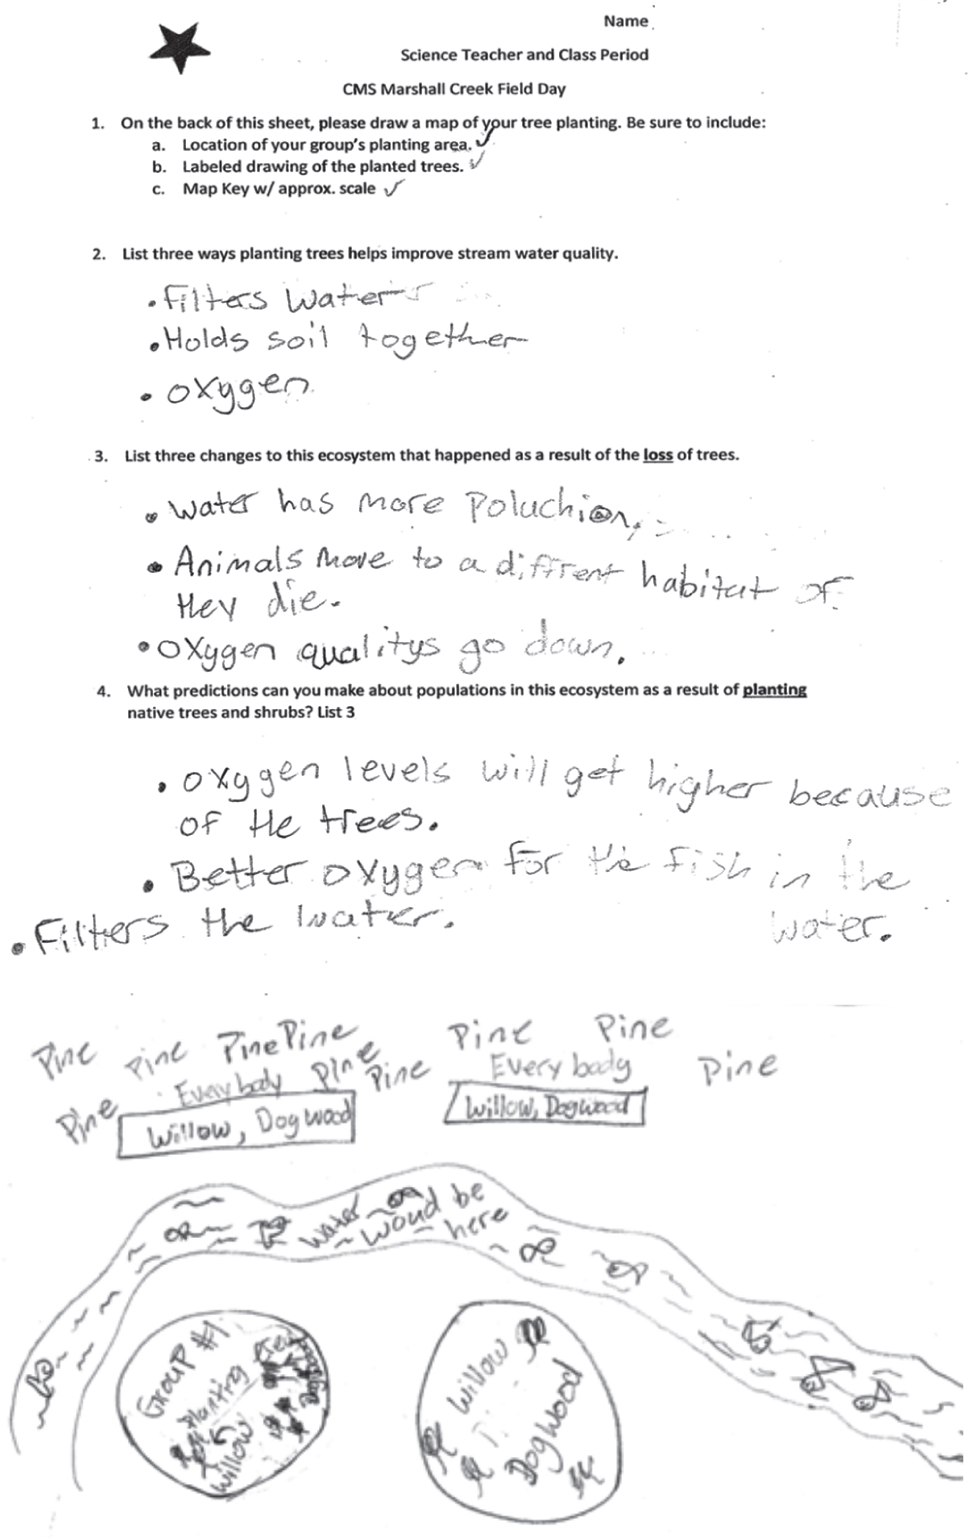 Name
Science Teacher and Class Period
CMS Marshall Creek Field Day
1. On the back of this sheet, please draw a map of your tree planting. Be sure to include:
a. Location of your group's planting area. ✓
b. Labeled drawing of the planted trees. ✓
c. Map Key w/ approx. scale ✓
2. List three ways planting trees helps improve stream water quality.
• Filters Water
• Holds soil together
• oxygen
3. List three changes to this ecosystem that happened as a result of the loss of trees.
• Water has more Poluchion.
• Animals Move to a diffrent habitat of
they die.
• oxygen qualitys go down.
4. What predictions can you make about populations in this ecosystem as a result of planting
native trees and shrubs? List 3
• oxygen levels will get higher because
of the trees.
• Better oxygen for the fish in the
water.
• Filters the water.
Pine Pine Pine Pine Pine Pine
Pine Pine Every body Pine
Pine Every body
Willow, Dogwood
Willow, Dogwood
Water woud be
here
Group #1
Planting
Willow
Willow
Dogwood